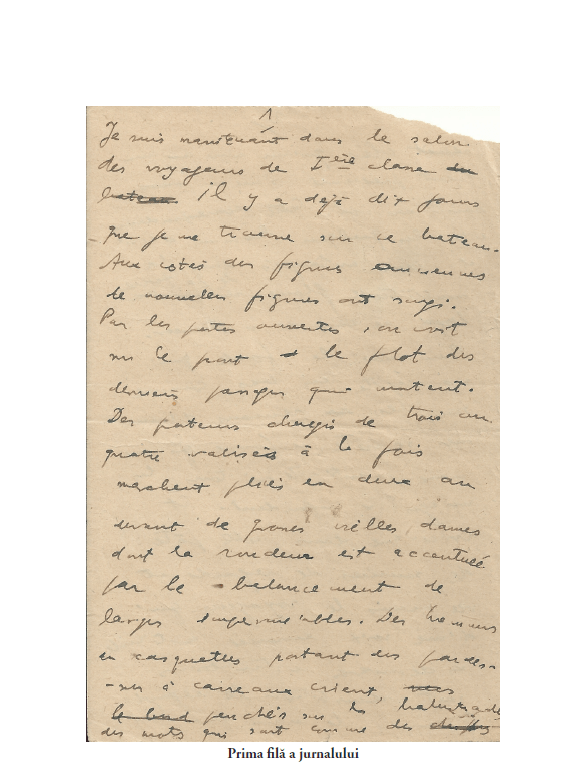 1
Je suis maintenant dans le salon
des voyageurs de Ière classe du
bateau il y a déjà dix jours
que je me trouve sur ce bateau.
Aux cotés des figures anciennes
de nouvelles figures ont surgi.
Par les portes ouvertes, on voit
sur le pont le flot des
derniers passagers qui montent.
Des porteurs chargés de trois ou
quatre valises à la fois
marchent pliés en deux au
devant de grosses vieilles dames
dont la rondeur est accentuée
par le balancement de
larges imperméables. Des hommes
en casquettes portant des pardes-
-sus à carreaux crient,
le bord penchés sur la balustrade
des mots qui sont comme des
Prima filă a jurnalului